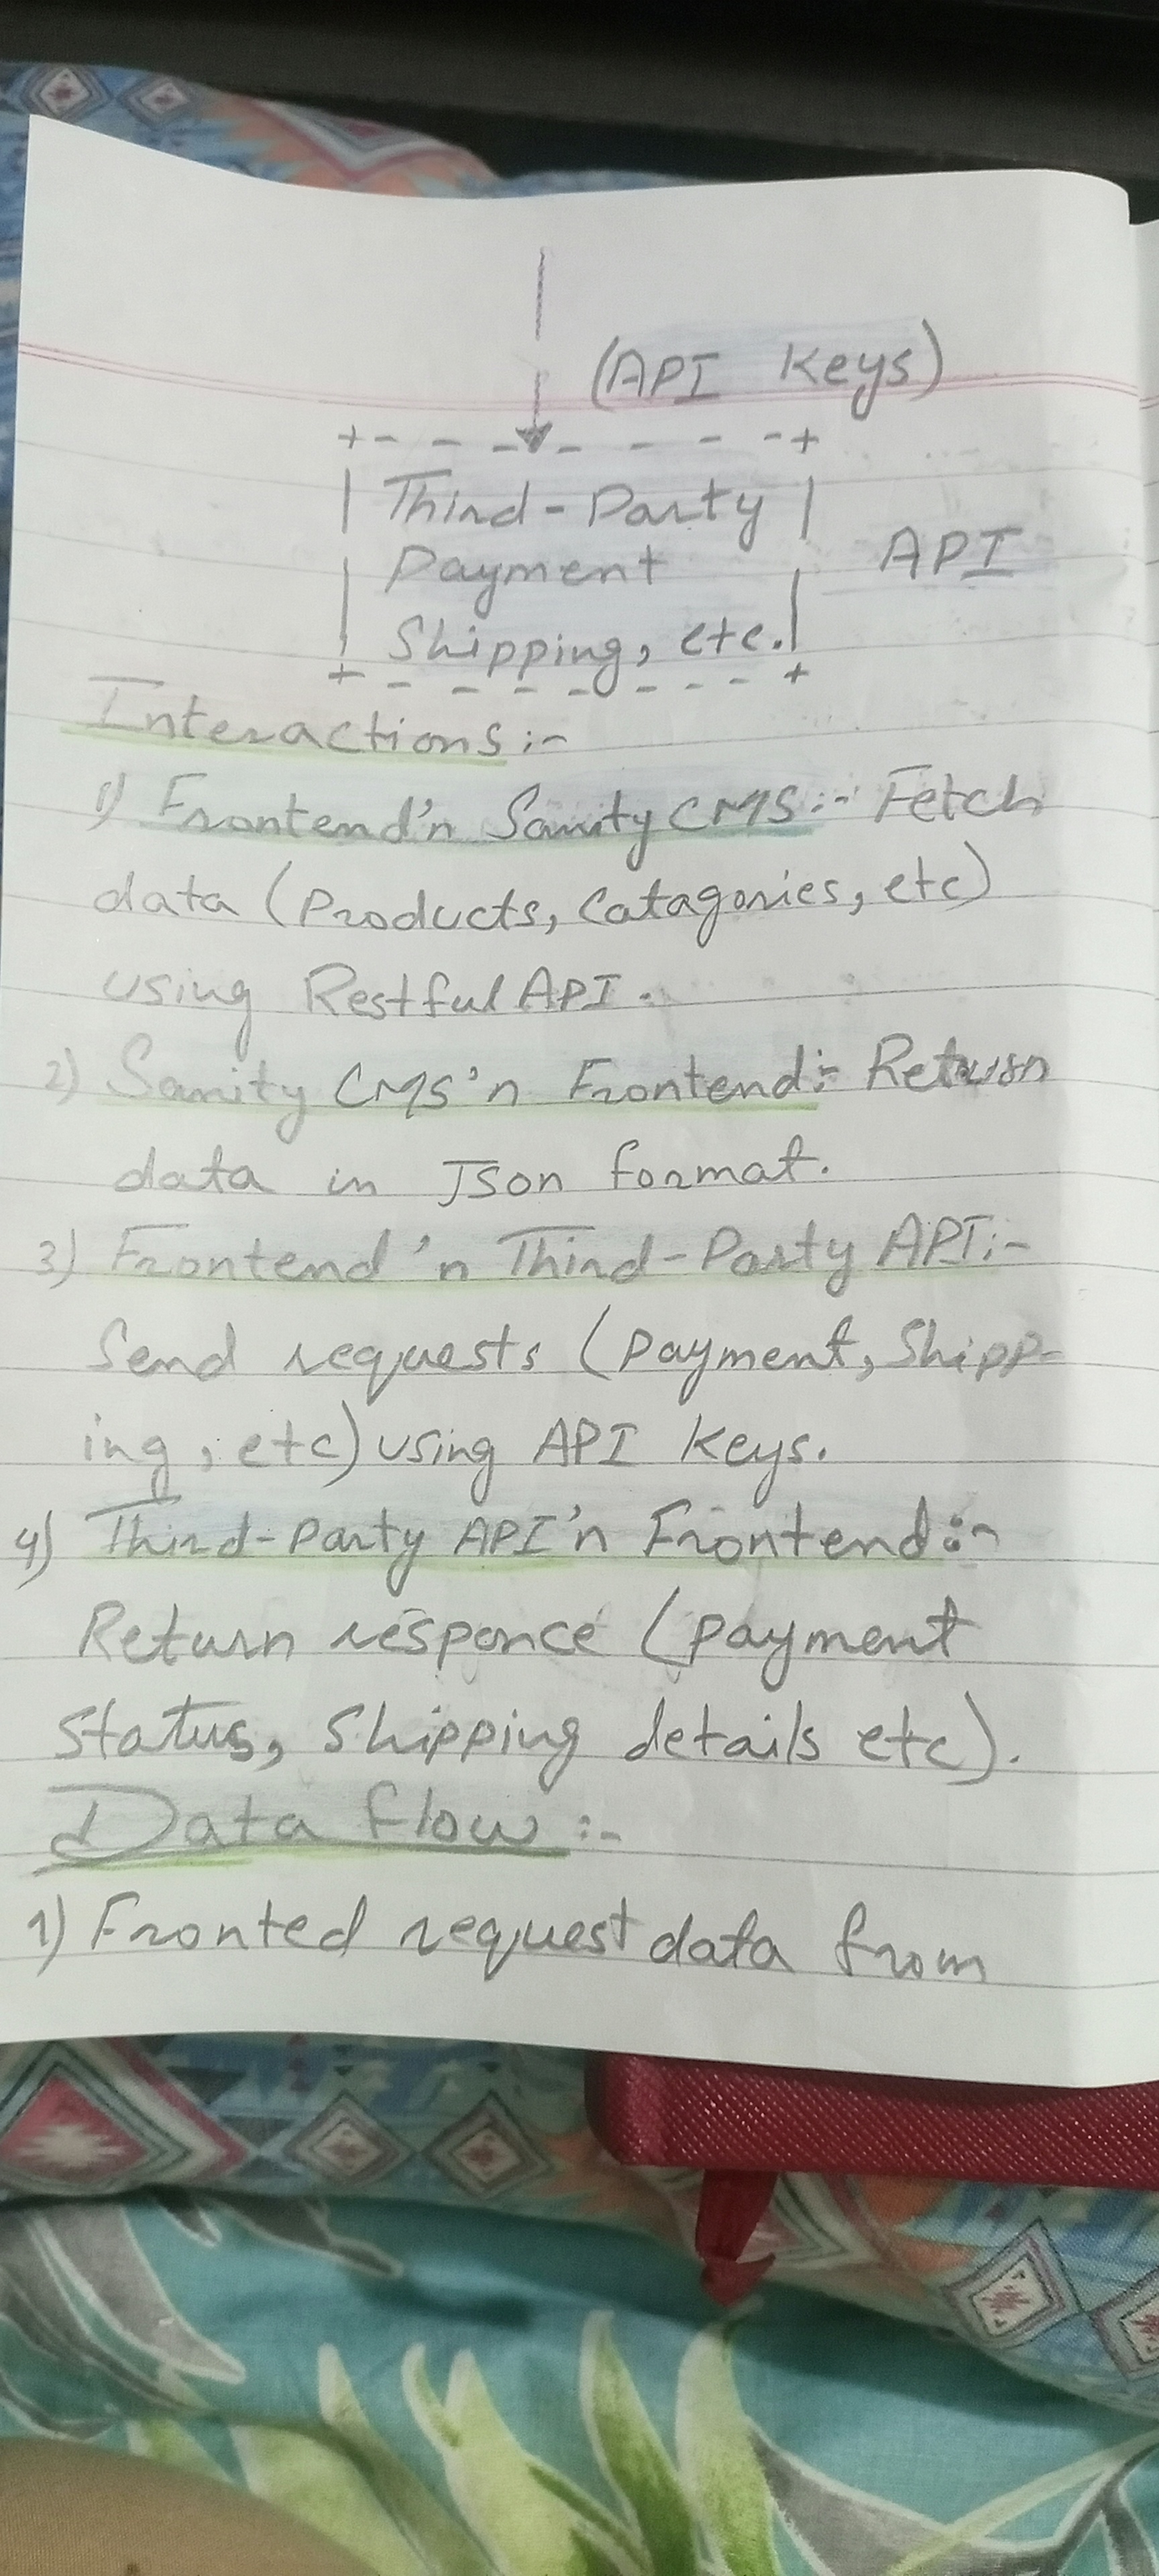 (API Keys)
+ - - - - - - - +
| Third-Party |
API
| Payment
Shipping, etc. |
+ - - - - - - - +
Interactions :-
1) Frontend'n Sanity CMS :- Fetch
data (Products, Catagories, etc)
using Restful API.
2) Sanity CMS'n Frontend :- Return
data in Json format.
3) Frontend 'n Third-Party API :-
Send requests (Payment, Shipp-
ing, etc) using API Keys.
4) Third-Party API'n Frontend :-
Return responce (payment
Status, Shipping details etc).
Data flow :-
1) Fronted request data from